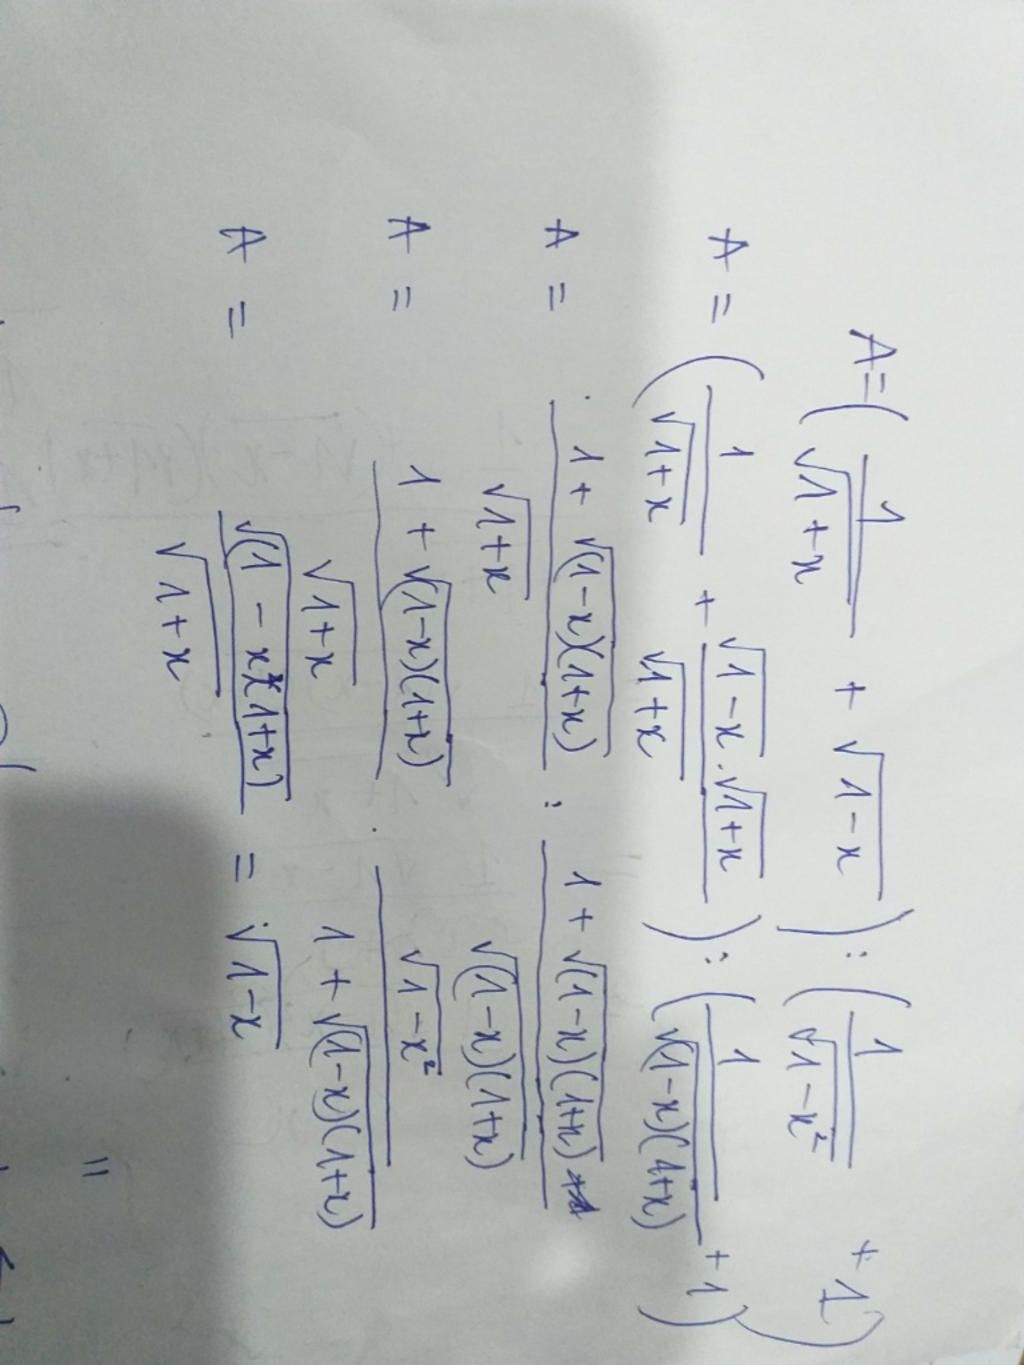 A = ( 1/√(1+x) + √(1-x) ) : ( 1/√(1-x²) + 1 )
A = ( 1/√(1+x) + √(1-x).√(1+x)/√(1+x) ) : ( 1/√((1-x)(1+x)) + 1 )
A = (1 + √((1-x)(1+x)))/√(1+x) : (1 + √((1-x)(1+x)))/√((1-x)(1+x))
A = (1 + √((1-x)(1+x)))/√(1+x) . √(1-x²)/(1 + √((1-x)(1+x)))
A = √((1-x)(1+x))/√(1+x) = √(1-x)
=